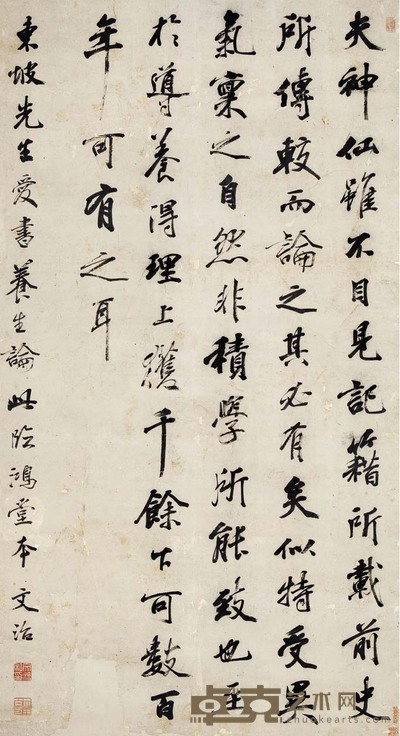 夫神仙雖不目見記籍所載前史
所傳較而論之其必有矣似特受異
氣稟之自然非積學所能致也至
於導養得理上獲千餘下可數百
年可有之耳
東坡先生愛書養生論此臨鴻堂本 文治
卓克艺术网
zhuokearts.com